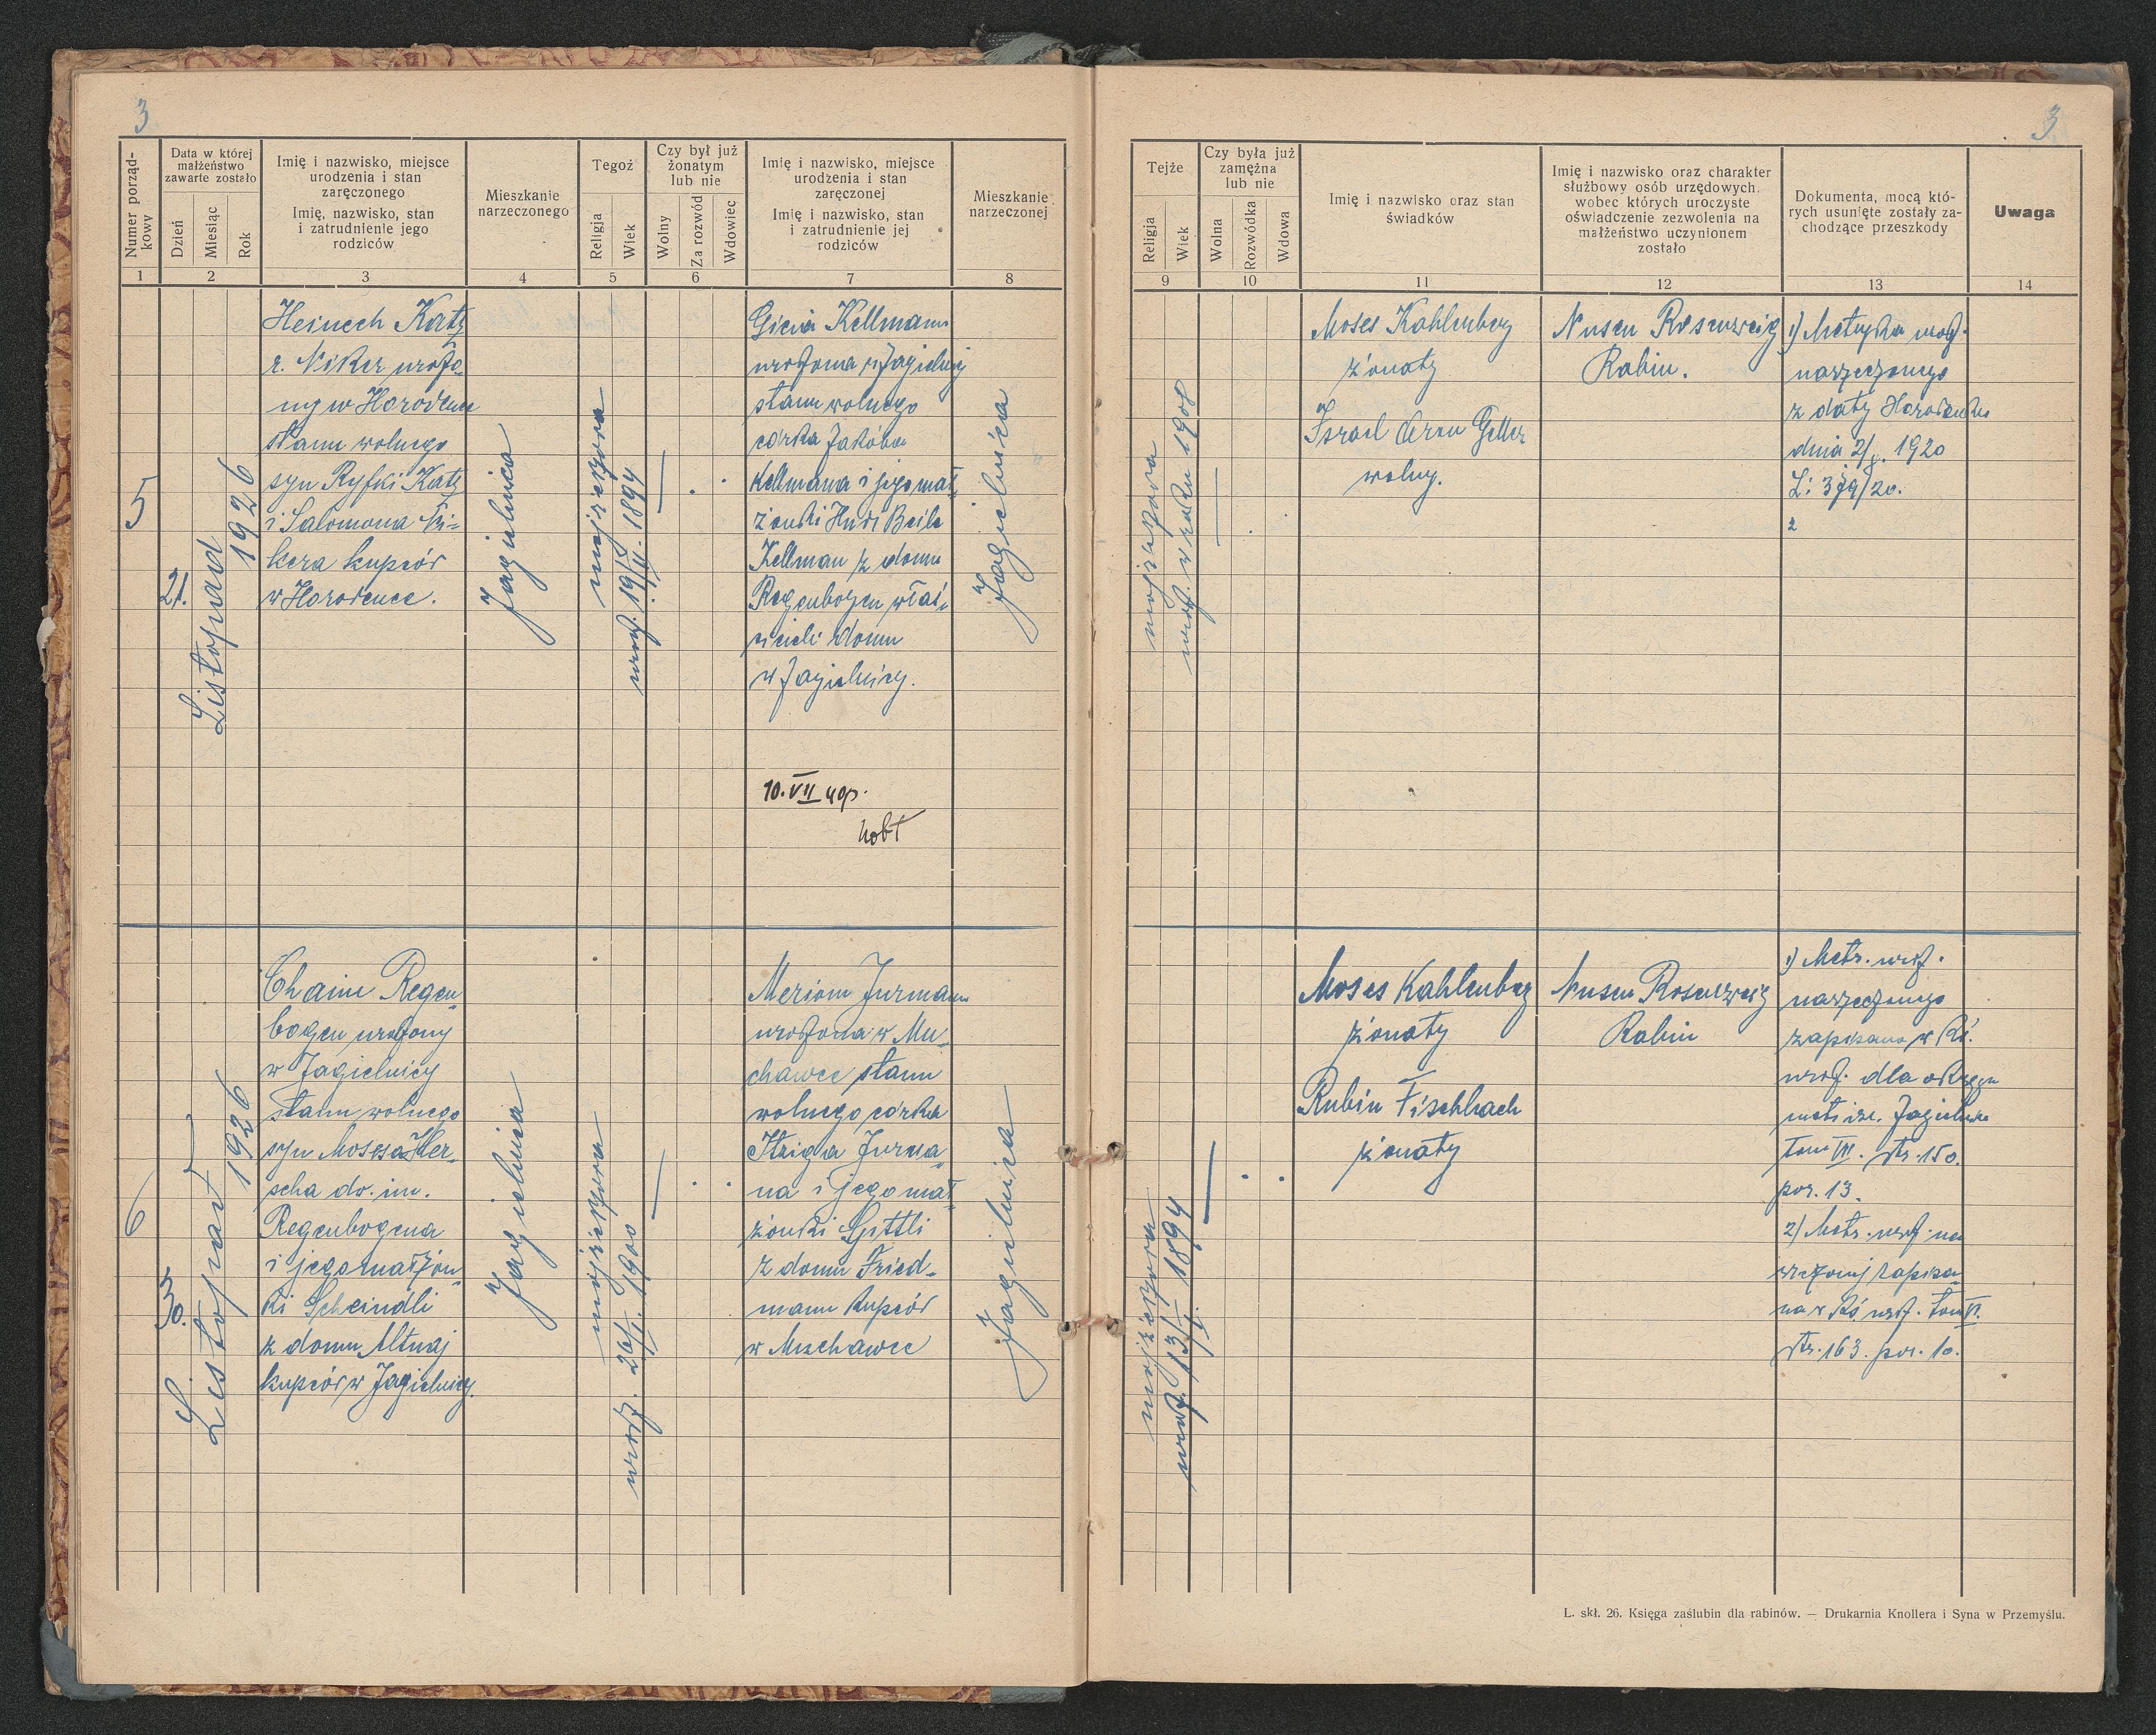 3
3
Numer porządkowy
Data w której
małżeństwo
zawarte zostało
Dzień
Miesiąc
Rok
Imię i nazwisko, miejsce
urodzenia i stan
zaręczonego
Imię, nazwisko, stan
i zatrudnienie jego
rodziców
Mieszkanie
narzeczonego
Tegoż
Religja
Wiek
Czy był już
żonatym
lub nie
Wolny
Za rozwód
Wdowiec
Imię i nazwisko, miejsce
urodzenia i stan
zaręczonej
Imię i nazwisko, stan
i zatrudnienie jej
rodziców
Mieszkanie
narzeczonej
1 2 3 4 5 6 7 8
Tejże
Religja
Wiek
Czy była już
zamężna
lub nie
Wolna
Rozwódka
Wdowa
Imię i nazwisko oraz stan
świadków
Imię i nazwisko oraz charakter
służbowy osób urzędowych,
wobec których uroczyste
oświadczenie zezwolenia na
małżeństwo uczynionem
zostało
Dokumenta, mocą któ-
rych usunięte zostały za-
chodzące przeszkody
Uwaga
9 10 11 12 13 14
5
21.
Listopad
1926
Heinech Katz
r. Niker urodzo-
ny w Horodence
stanu wolnego
syn Ryfki Katz
i Salomona Ni-
kera kupców
w Horodence.
Jagielnica
mojżeszowa
urodz. 19/II. 1894
Gicia Kellmann
urodzona w Jagielnicy
stanu wolnego
córka Jakóba
Kellmana i jego mał-
żonki Hudi Beile
Kellman z domu
Regenbogen właś-
cicieli domu
w Jagielnicy.
10. VII
Jagielnica
mojżeszowa
urodz. w roku 1908
Moses Kahlenberg
żonaty
Israel Aron Geller
wolny.
Nusen Rosenzweig
Rabin.
1) Metryka urodz.
narzeczonego
z daty Horodenka
dnia 2/ . 1920
L: 379/20.
6
30.
Listopad
1926
Chaim Regen-
bogen urodzony
w Jagielnicy
stanu wolnego
syn Mosesa Her-
scha dw. im.
Regenbogena
i jego małżon-
ki Scheindli
z domu Altnaj
kupców w Jagielnicy.
Jagielnica
mojżeszowa
urodz. 26/I. 1900
Meriom Jurmann
urodzona w Mu-
chawce stanu
wolnego córka
Itziga Jurma-
na i jego mał-
żonki Gittli
z domu Fried-
mann kupców
w Muchawce
Jagielnica
mojżeszowa
urodz. 13/I. 1894
Moses Kahlenberg
żonaty
Rubin Fischbach
żonaty
Nusen Rosenzweig
Rabin
1) Metr. urodz.
narzeczonego
zapisana w Ks.
urodz. dla okręgu
metr. izr. Jagielnica
tom VII. str. 150.
por. 13.
2) Metr. urodz. na
rzeczonej zapisa-
na w Ks. urodz. tom VI.
str. 163. por. 10.
L. skł. 26. Księga zaślubin dla rabinów. — Drukarnia Knollera i Syna w Przemyślu.